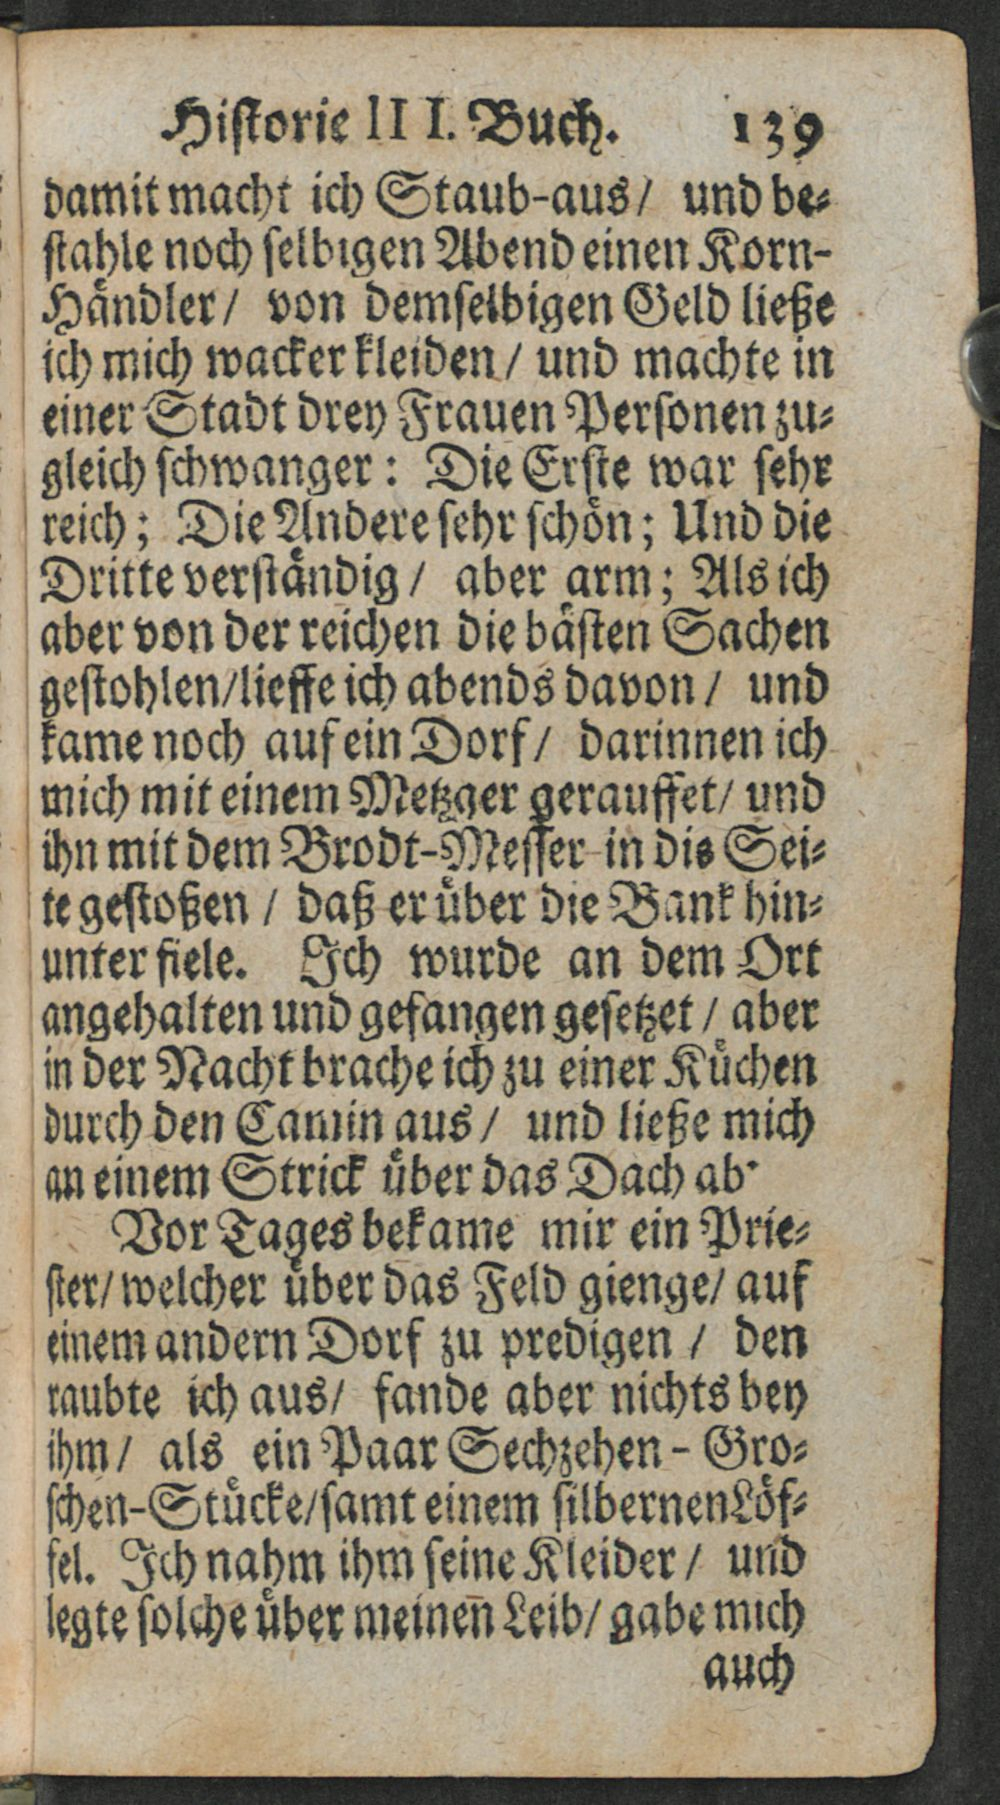 Historie III. Buch. 139
damit macht ich Staub-aus/ und be-
stahle noch selbigen Abend einen Korn-
Händler/ von demselbigen Geld ließe
ich mich wacker kleiden/ und machte in
einer Stadt drey Frauen Personen zu-
gleich schwanger: Die Erste war sehr
reich; Die Andere sehr schön; Und die
Dritte verständig/ aber arm; Als ich
aber von der reichen die bästen Sachen
gestohlen/lieffe ich abends davon/ und
kame noch auf ein Dorf/ darinnen ich
mich mit einem Metzger gerauffet/ und
ihn mit dem Brodt-Messer in die Sei-
te gestoßen/ daß er über die Bank hin-
unter fiele. Ich wurde an dem Ort
angehalten und gefangen gesetzet/ aber
in der Nacht brache ich zu einer Küchen
durch den Camin aus/ und ließe mich
an einem Strick über das Dach ab.
Vor Tages bekame mir ein Prie-
ster/ welcher über das Feld gienge/ auf
einem andern Dorf zu predigen/ den
raubte ich aus/ fande aber nichts bey
ihm/ als ein Paar Sechzehen-Gro-
schen-Stücke/samt einem silbernen Löf-
fel. Ich nahm ihm seine Kleider/ und
legte solche über meinen̄ Leib/ gabe mich
auch